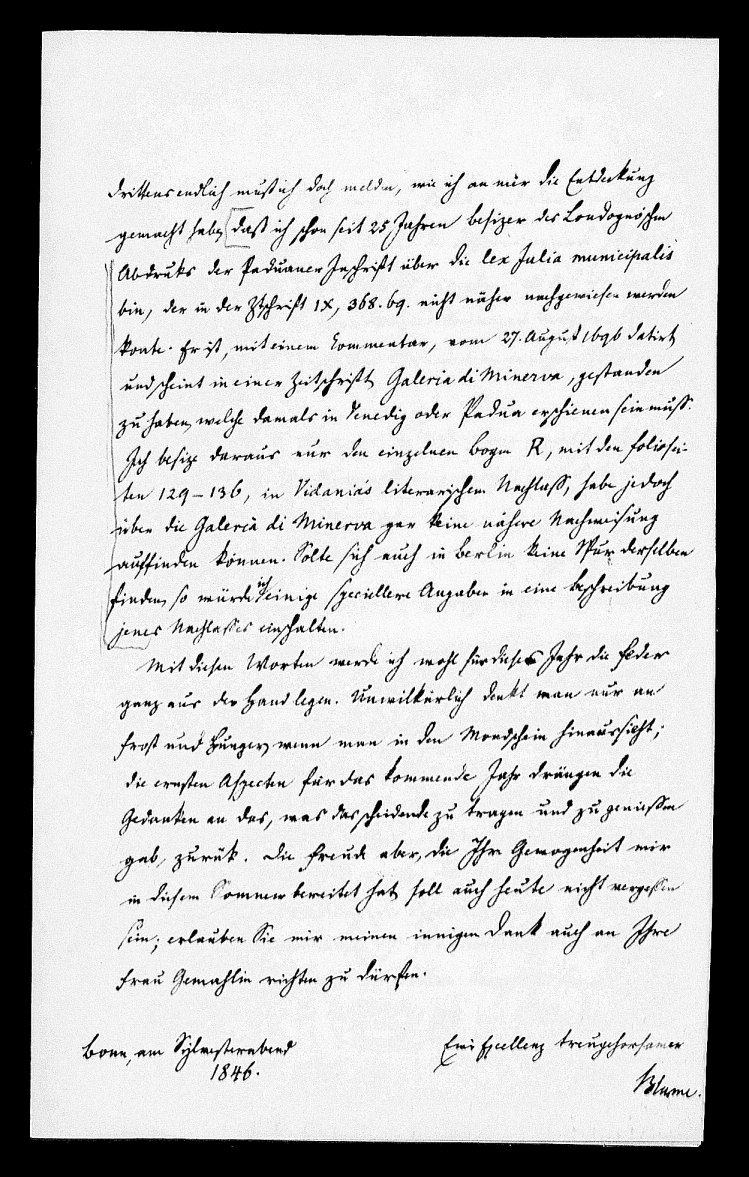 Drittens endlich muß ich doch melden, wie ich an mir die Entdeckung
gemacht habe, daß ich schon seit 25 Jahren besizer des Londognöschen
Abdruks der Paduaner Inschrift über die lex Julia municipalis
bin, der in der Ztschrift IX, 368. 69. nicht näher nachgewiesen werden
konte. Er ist, mit einem Commentar, vom 27. August 1696 datirt
und scheint in einer Zeitschrift, Galeria di Minerva, gestanden
zu haben, welche damals in Venedig oder Padua erschienen sein muß.
Ich besize daraus nur den einzelnen bogen R, mit den folioseiten
129–136, in Vidania's literarischem Nachlaß, habe jedoch
über die Galeria di Minerva gar keine nähere Nachweisung
auffinden können. Solte sich auch in berlin keine Spur derselben
finden, so würde ich einige speciellere Angaben in eine beschreibung
jenes Nachlaßes einschalten.
Mit diesen Worten werde ich wohl für dieses Jahr die Feder
ganz aus der Hand legen. Unwilkürlich denkt man nur an
Frost und Hunger, wenn man in den Mondschein hinaussieht;
die ernsten Aspecten für das kommende Jahr drängen die
Gedanken an das, was das scheidende zu tragen und zu genießen
gab, zurük. Die Freude aber, die Ihre Gewogenheit mir
in diesem Sommer bereitet hat, soll auch heute nicht vergeßen
sein; erlauben Sie mir meinen innigen Dank auch an Ihre
Frau Gemahlin richten zu dürfen.
bonn, am Sylvesterabend
1846.
Ewr Excellenz treugehorsamer
Blume.